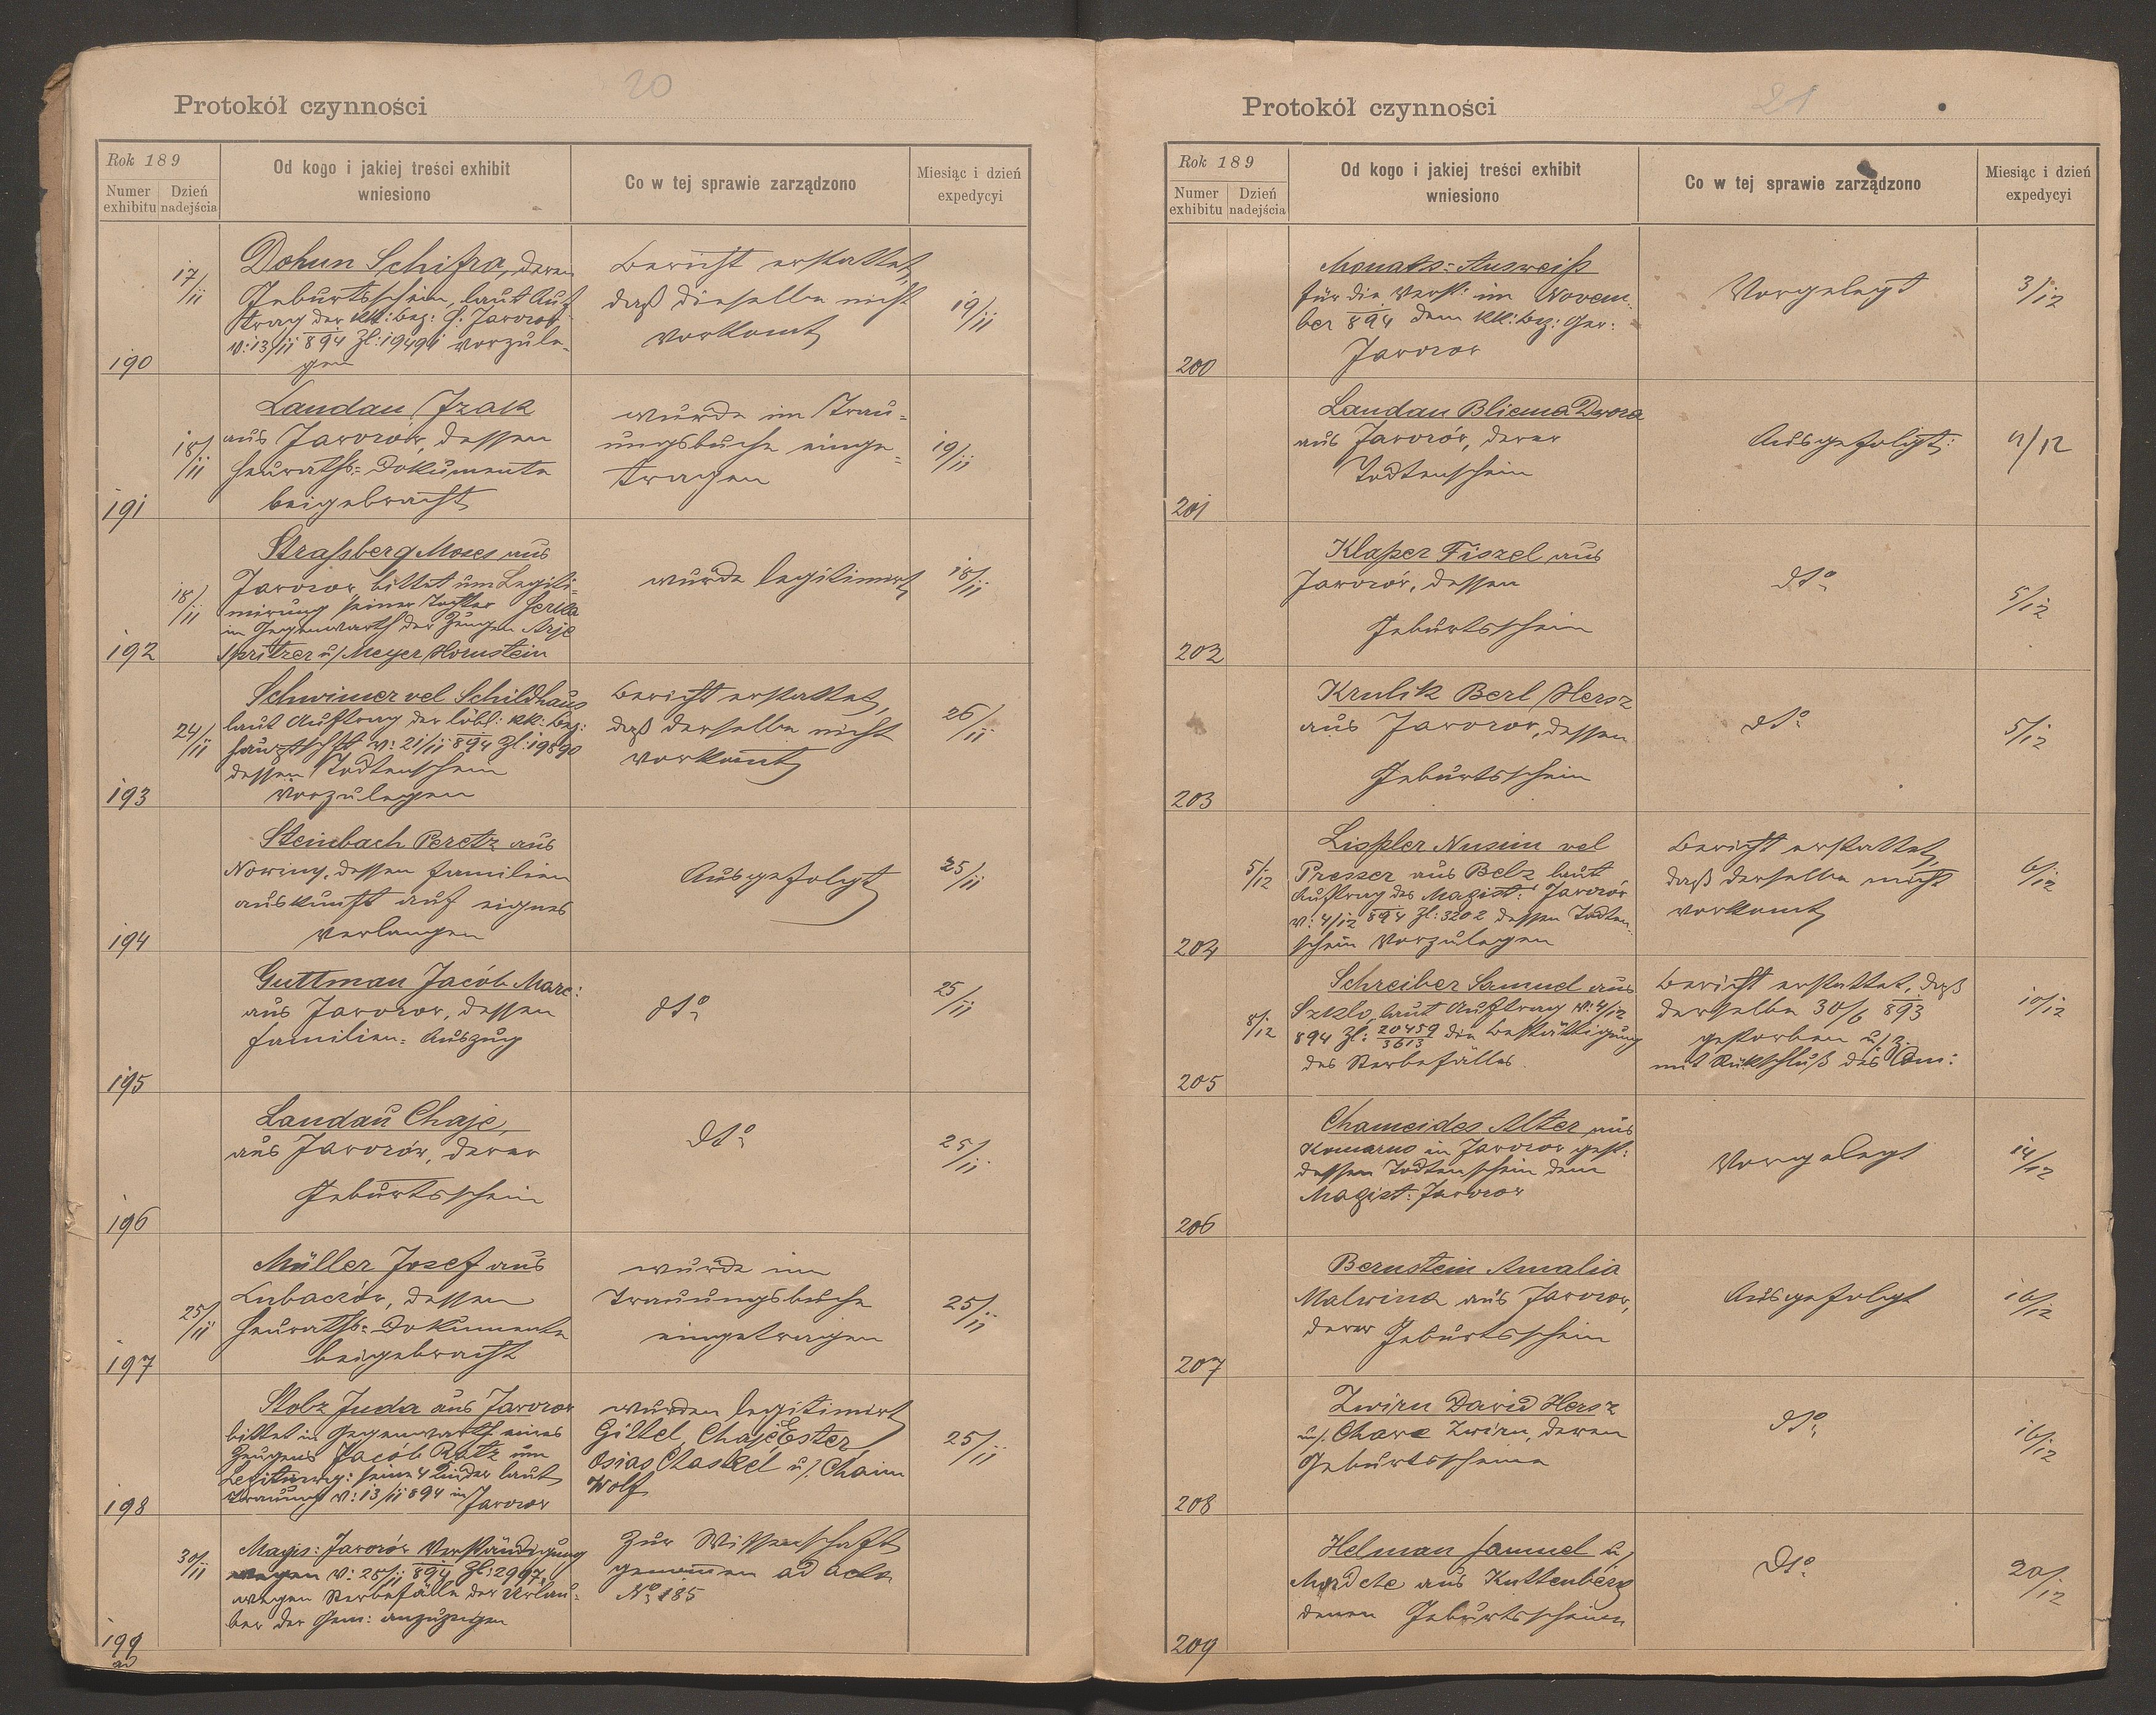 20
Protokół czynności
Rok 189
Numer exhibitu
Dzień nadejścia
Od kogo i jakiej treści exhibit wniesiono
Co w tej sprawie zarządzono
Miesiąc i dzień expedycyi
190
17/11
Dohun Schifra, deren
Geburtsschein, laut Auf
trag der kk: Bez: H: Javorow
v: 13/11 894 Zl: 19491 vorzule-
gen
Bericht erstattet,
daß dieselbe nicht
vorkomt
19/11
191
18/11
Landau Izak
aus Javorów, dessen
Heuraths=Dokumente
beigebracht
wurde im Trau=
ungsbuche einge=
tragen
19/11
192
18/11
Straßberg Moses aus
Javorow, bittet um Legiti=
mirung seiner Tochter
in Gegenwarth der Zeugen Arje
Spritzer u/ Meyer Hornstein
wurde legitimirt
18/11
193
24/11
Schwimer vel Schildhaus
laut Auftrag der löbl: kk: Bez:
v: 21/11 894 Zl: 19890
dessen Todtenschein
vorzulegen
Bericht erstattet,
daß derselbe nicht
vorkomt
26/11
194
Steinbach Peretz aus
Nowiny, dessen Familien
auskunft auf eignes
Verlangen
Ausgefolgt
25/11
195
Guttman Jacób Marc:
aus Javorow, dessen
Familien=Auszug
dto
25/11
196
Landau Chaje,
aus Javorów, derer
Geburtsschein
dto
25/11
197
25/11
Müller Josef aus
Lubaczów, dessen
Heuraths=Dokumente
beigebracht
wurde im
Trauungsbuche
eingetragen
25/11
198
Stolz Juda aus Javorow
bittet in Gegenwarth eines
Zeugens Jacób Ratz um
seine 4 Kinder laut
Trauung v: 13/11 894 in Javorow
wurden legitimirt
Gittel, Chaje Ester,
Osias Chaskel u/ Chaim
Wolf
25/11
199
ad
30/11
Magis: Javorów Verständigung
v: 25/11 894 Zl: 2997
wegen Sterbefälle der Urlau=
ber der Gem: anzuzeigen
Zur Wissenschaft
genommen ad acta
No 185
21
Protokół czynności
Rok 189
Numer exhibitu
Dzień nadejścia
Od kogo i jakiej treści exhibit wniesiono
Co w tej sprawie zarządzono
Miesiąc i dzień expedycyi
200
Monats=Ausweiß
für die Verst: im Novem
ber 894 dem kk: Bez: Ger:
Javorow
Vorgelegt
3/12
201
Landau Bliema Dwora
aus Javorów, derer
Todtenschein
Ausgefolgt:
4/12
202
Klaßer Fiszel aus
Javorów, dessen
Geburtsschein
dto
5/12
203
Krulik Berl Hersz
aus Javorow, dessen
Geburtsschein
dto
5/12
204
5/12
Lißpler Nusim vel
Presser aus Belz laut
Auftrag des Magist: Javorów
v: 4/12 894 Zl: 3202 dessen Todten
schein vorzulegen
Bericht erstattet,
daß derselbe nicht
vorkomt
6/12
205
8/12
Schreiber Samuel aus
Szklo, laut Auftrag v: 4/12
894 Zl: 20459/3613 die Bestättigung
des Sterbefalles
Bericht erstattet, daß
derselbe 30/6 893
gestorben
mit Rükschluß des
10/12
206
Chameides Alter aus
Komarno in Javorow gest:
dessen Todtenschein dem
Magist: Javorow
Vorgelegt
14/12
207
Bernstein Amalia
Malwina aus Javorow,
derer Geburtsschein
Ausgefolgt
16/12
208
Zwirn David Hersz
u/ Chawe Zwirn, deren
Geburtsscheine
dto
16/12
209
Helman Samuel u/
Mordche aus Kuttenberg
denen Geburtsscheinen
dto
20/12